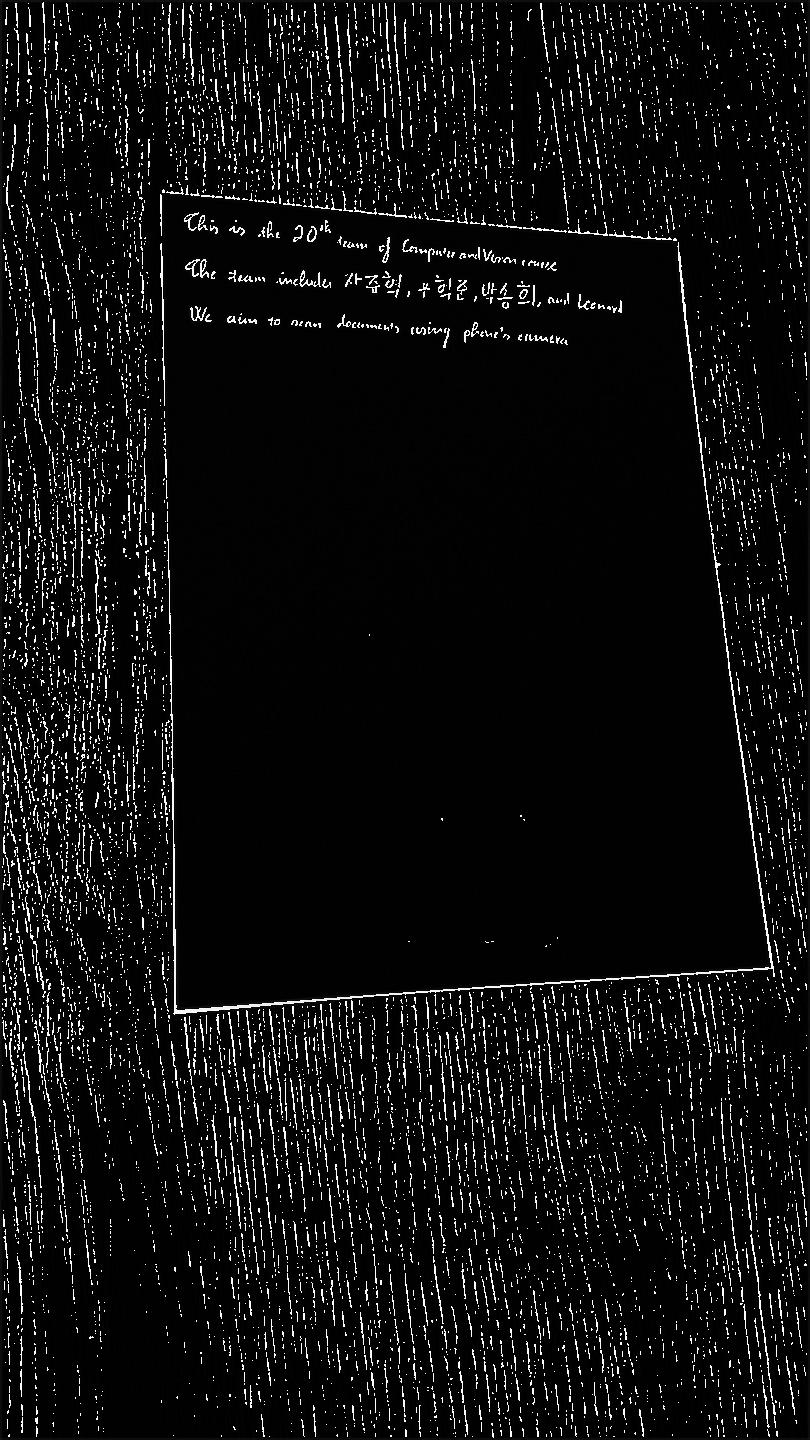 This is the 20th team of Computer and Vision course
The team includes 차준혁, 우희준, 박승희, and Leonard
We aim to scan documents using phone's camera